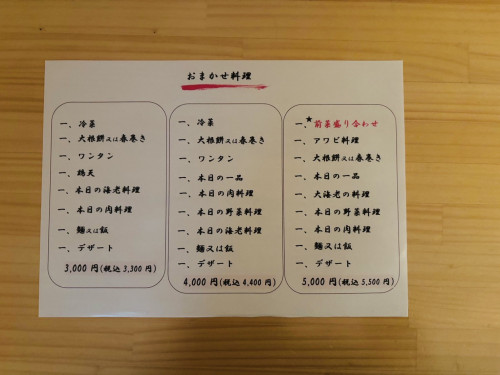 おまかせ料理
一、冷菜
一、大根餅又は春巻き
一、ワンタン
一、鶏天
一、本日の海老料理
一、本日の肉料理
一、麺又は飯
一、デザート
3,000円(税込3,300円)
一、冷菜
一、大根餅又は春巻き
一、ワンタン
一、本日の一品
一、本日の肉料理
一、本日の野菜料理
一、本日の海老料理
一、麺又は飯
一、デザート
4,000円(税込4,400円)
一、★前菜盛り合わせ
一、アワビ料理
一、大根餅又は春巻き
一、本日の一品
一、大海老の料理
一、本日の野菜料理
一、本日の肉料理
一、麺又は飯
一、デザート
5,000円(税込5,500円)